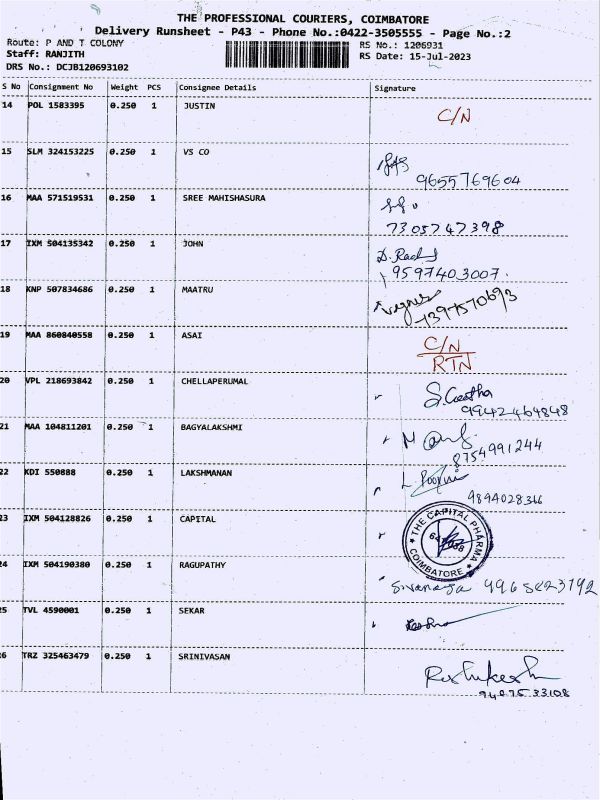 THE PROFESSIONAL COURIERS, COIMBATORE
Delivery Runsheet - P43 - Phone No.:0422-3505555 - Page No.:2
Route: P AND T COLONY RS No.: 1206931
Staff: RANJITH RS Date: 15-Jul-2023
DRS No.: DCJB120693102
S No Consignment No Weight PCS Consignee Details Signature
14 POL 1583395 0.250 1 JUSTIN C/N
15 SLM 324153225 0.250 1 VS CO
9655769604
16 MAA 571519531 0.250 1 SREE MAHISHASURA
7305747398
17 IXM 504135342 0.250 1 JOHN
9597403007.
18 KNP 507834686 0.250 1 MAATRU
19 MAA 860840558 0.250 1 ASAI C/N
RTN
20 VPL 218693842 0.250 1 CHELLAPERUMAL S. Geetha
9942464848
21 MAA 104811201 0.250 1 BAGYALAKSHMI
8754991244
22 KDI 550888 0.250 1 LAKSHMANAN
23 IXM 504128826 0.250 1 CAPITAL THE CAPITAL PHARMA
COIMBATORE
24 IXM 504190380 0.250 1 RAGUPATHY
25 TVL 4590001 0.250 1 SEKAR
26 TRZ 325463479 0.250 1 SRINIVASAN Rishikesh